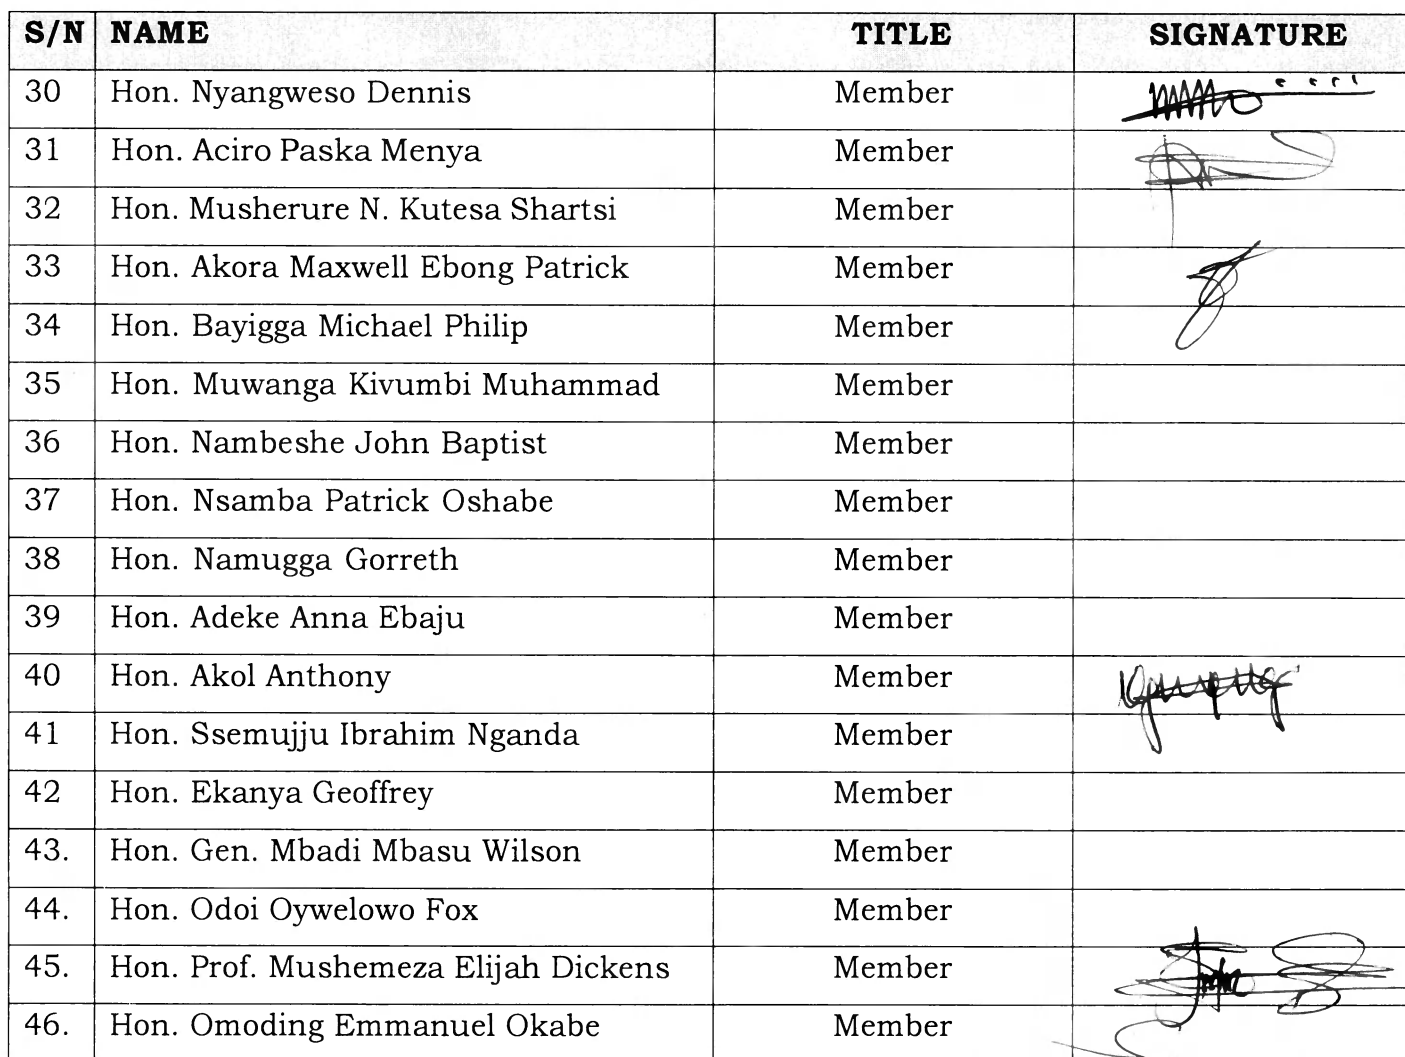 S/N NAME TITLE SIGNATURE
30 Hon. Nyangweso Dennis Member
31 Hon. Aciro Paska Menya Member
32 Hon. Musherure N. Kutesa Shartsi Member
33 Hon. Akora Maxwell Ebong Patrick Member
34 Hon. Bayigga Michael Philip Member
35 Hon. Muwanga Kivumbi Muhammad Member
36 Hon. Nambeshe John Baptist Member
37 Hon. Nsamba Patrick Oshabe Member
38 Hon. Namugga Gorreth Member
39 Hon. Adeke Anna Ebaju Member
40 Hon. Akol Anthony Member
41 Hon. Ssemujju Ibrahim Nganda Member
42 Hon. Ekanya Geoffrey Member
43. Hon. Gen. Mbadi Mbasu Wilson Member
44. Hon. Odoi Oywelowo Fox Member
45. Hon. Prof. Mushemeza Elijah Dickens Member
46. Hon. Omoding Emmanuel Okabe Member